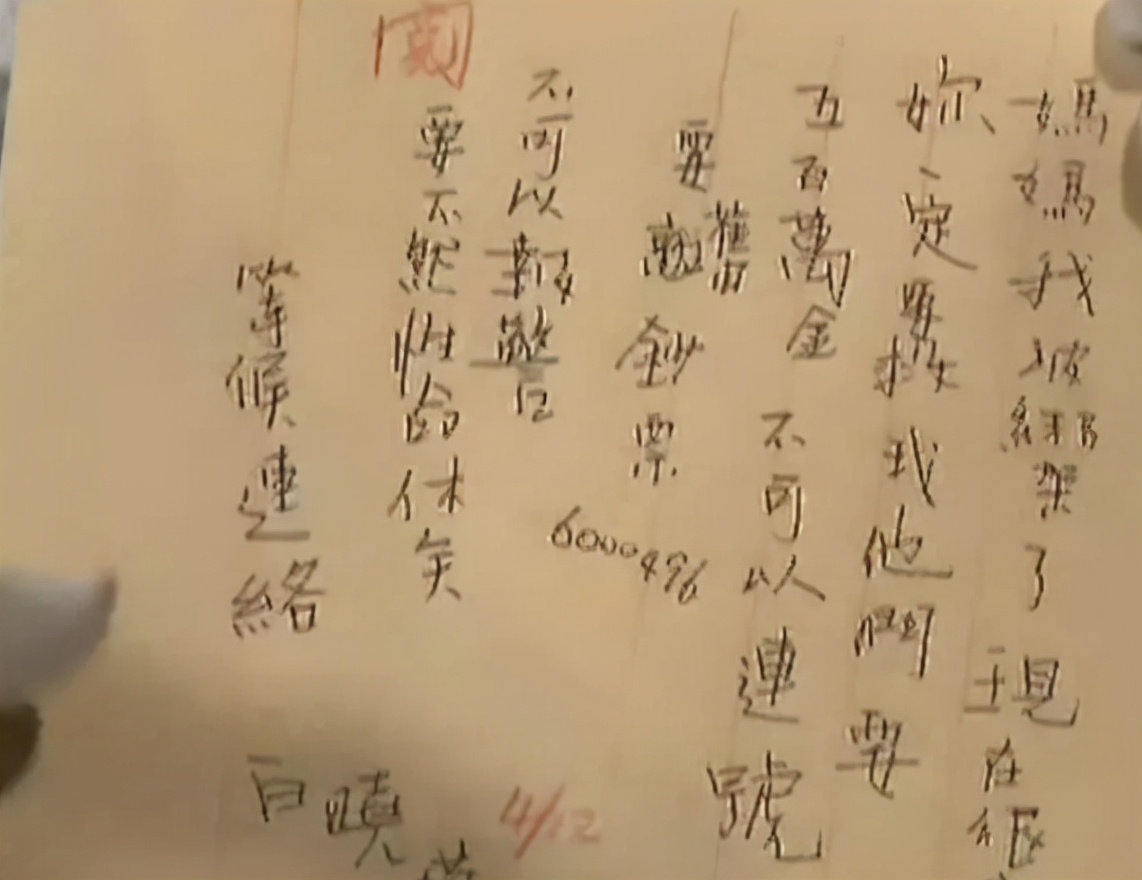 媽媽我被綁架了現在很
妳一定要救我他們要
五百萬金 不可以連號
要舊鈔票
6000496
不可以報警
要不然性命休矣
等候連絡
白曉
4/12